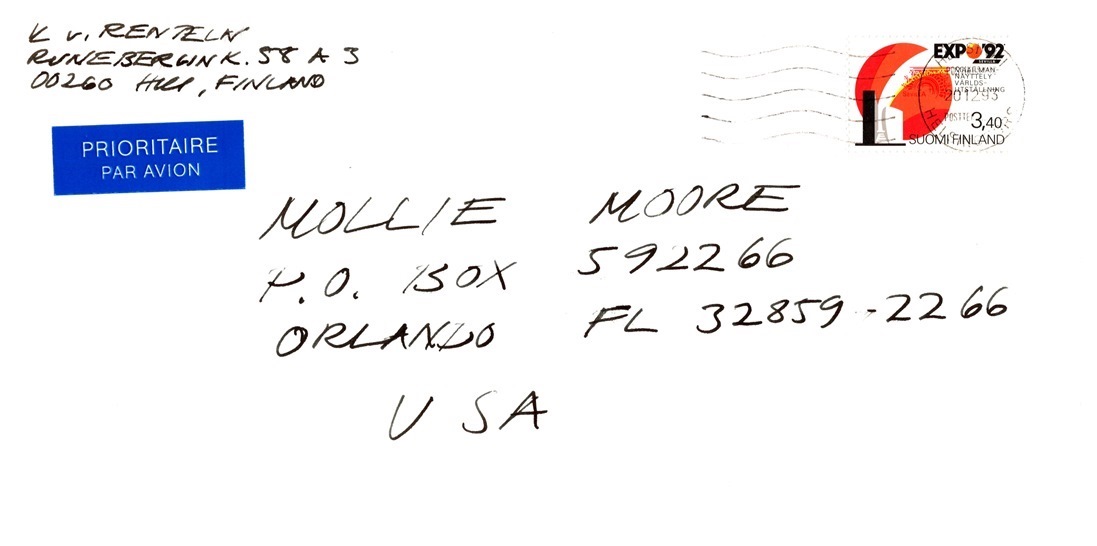 K v. RENTELN
RUNEBERGINK. 58 A 3
00260 HKI, FINLAND
PRIORITAIRE
PAR AVION
EXPO'92
SEVILLA
MAAILMAN-
NÄYTTELY
VÄRLDS-
UTSTÄLLNING
20.12.93
3,40
SUOMI FINLAND
MOLLIE MOORE
P.O. BOX 592266
ORLANDO FL 32859-2266
USA